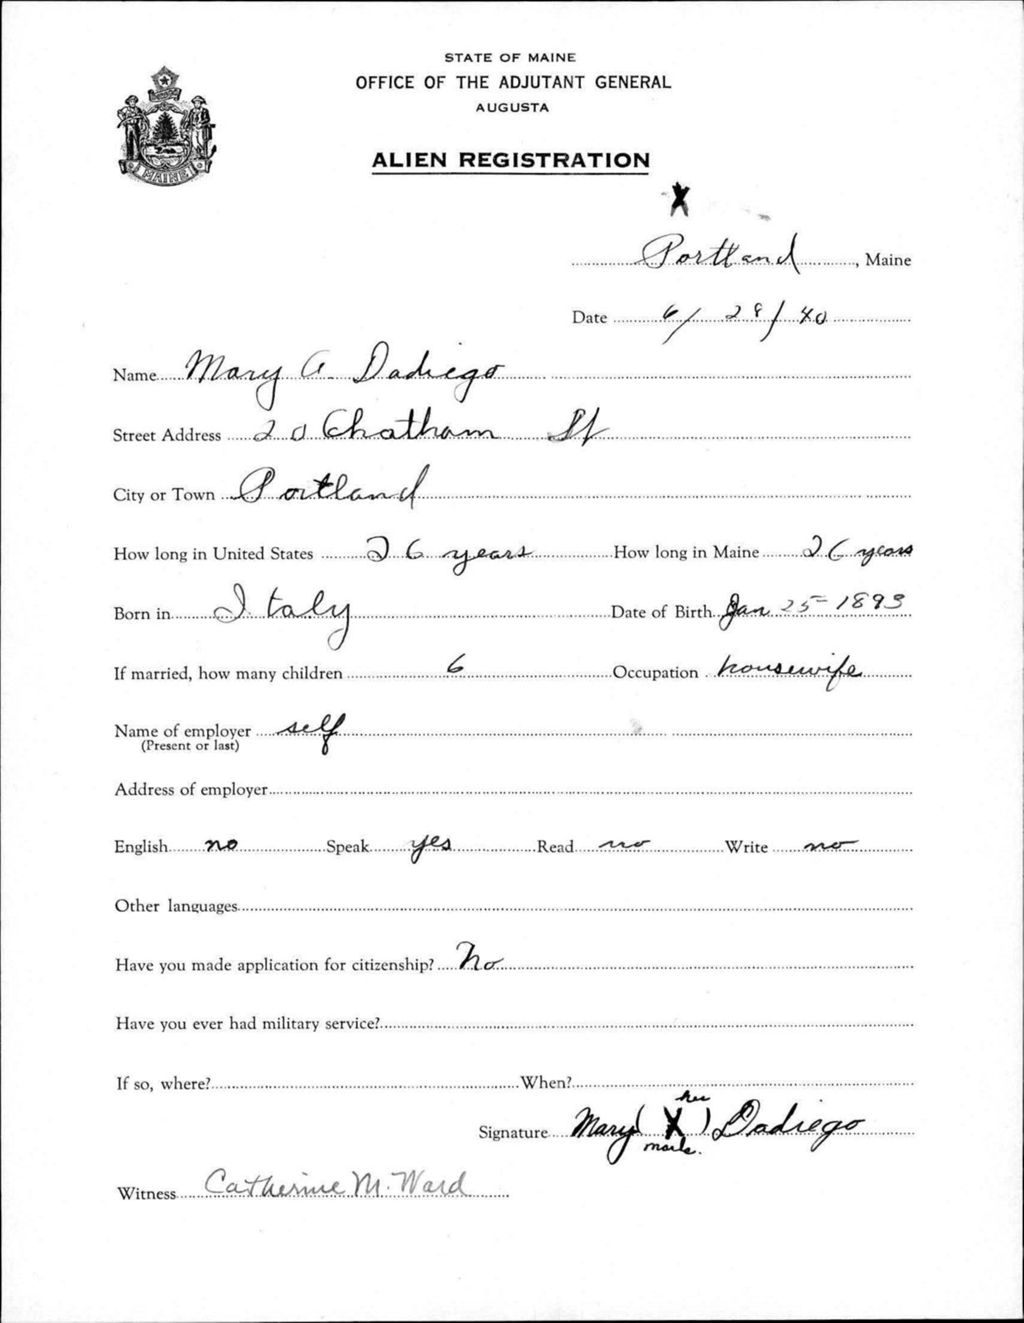 STATE OF MAINE
OFFICE OF THE ADJUTANT GENERAL
AUGUSTA
MAINE
ALIEN REGISTRATION
X
Portland, Maine
Date 6/28/40
Name Mary A. Dadiego
Street Address 20 Chatham St
City or Town Portland
How long in United States 26 years How long in Maine 26 years
Born in Italy Date of Birth Jan 25 - 1893
If married, how many children 6 Occupation housewife
Name of employer self
(Present or last)
Address of employer
English no Speak yes Read no Write no
Other languages
Have you made application for citizenship? No
Have you ever had military service?
If so, where? When?
her
Signature Mary (X) Dadiego
mark.
Witness Catherine M. Ward